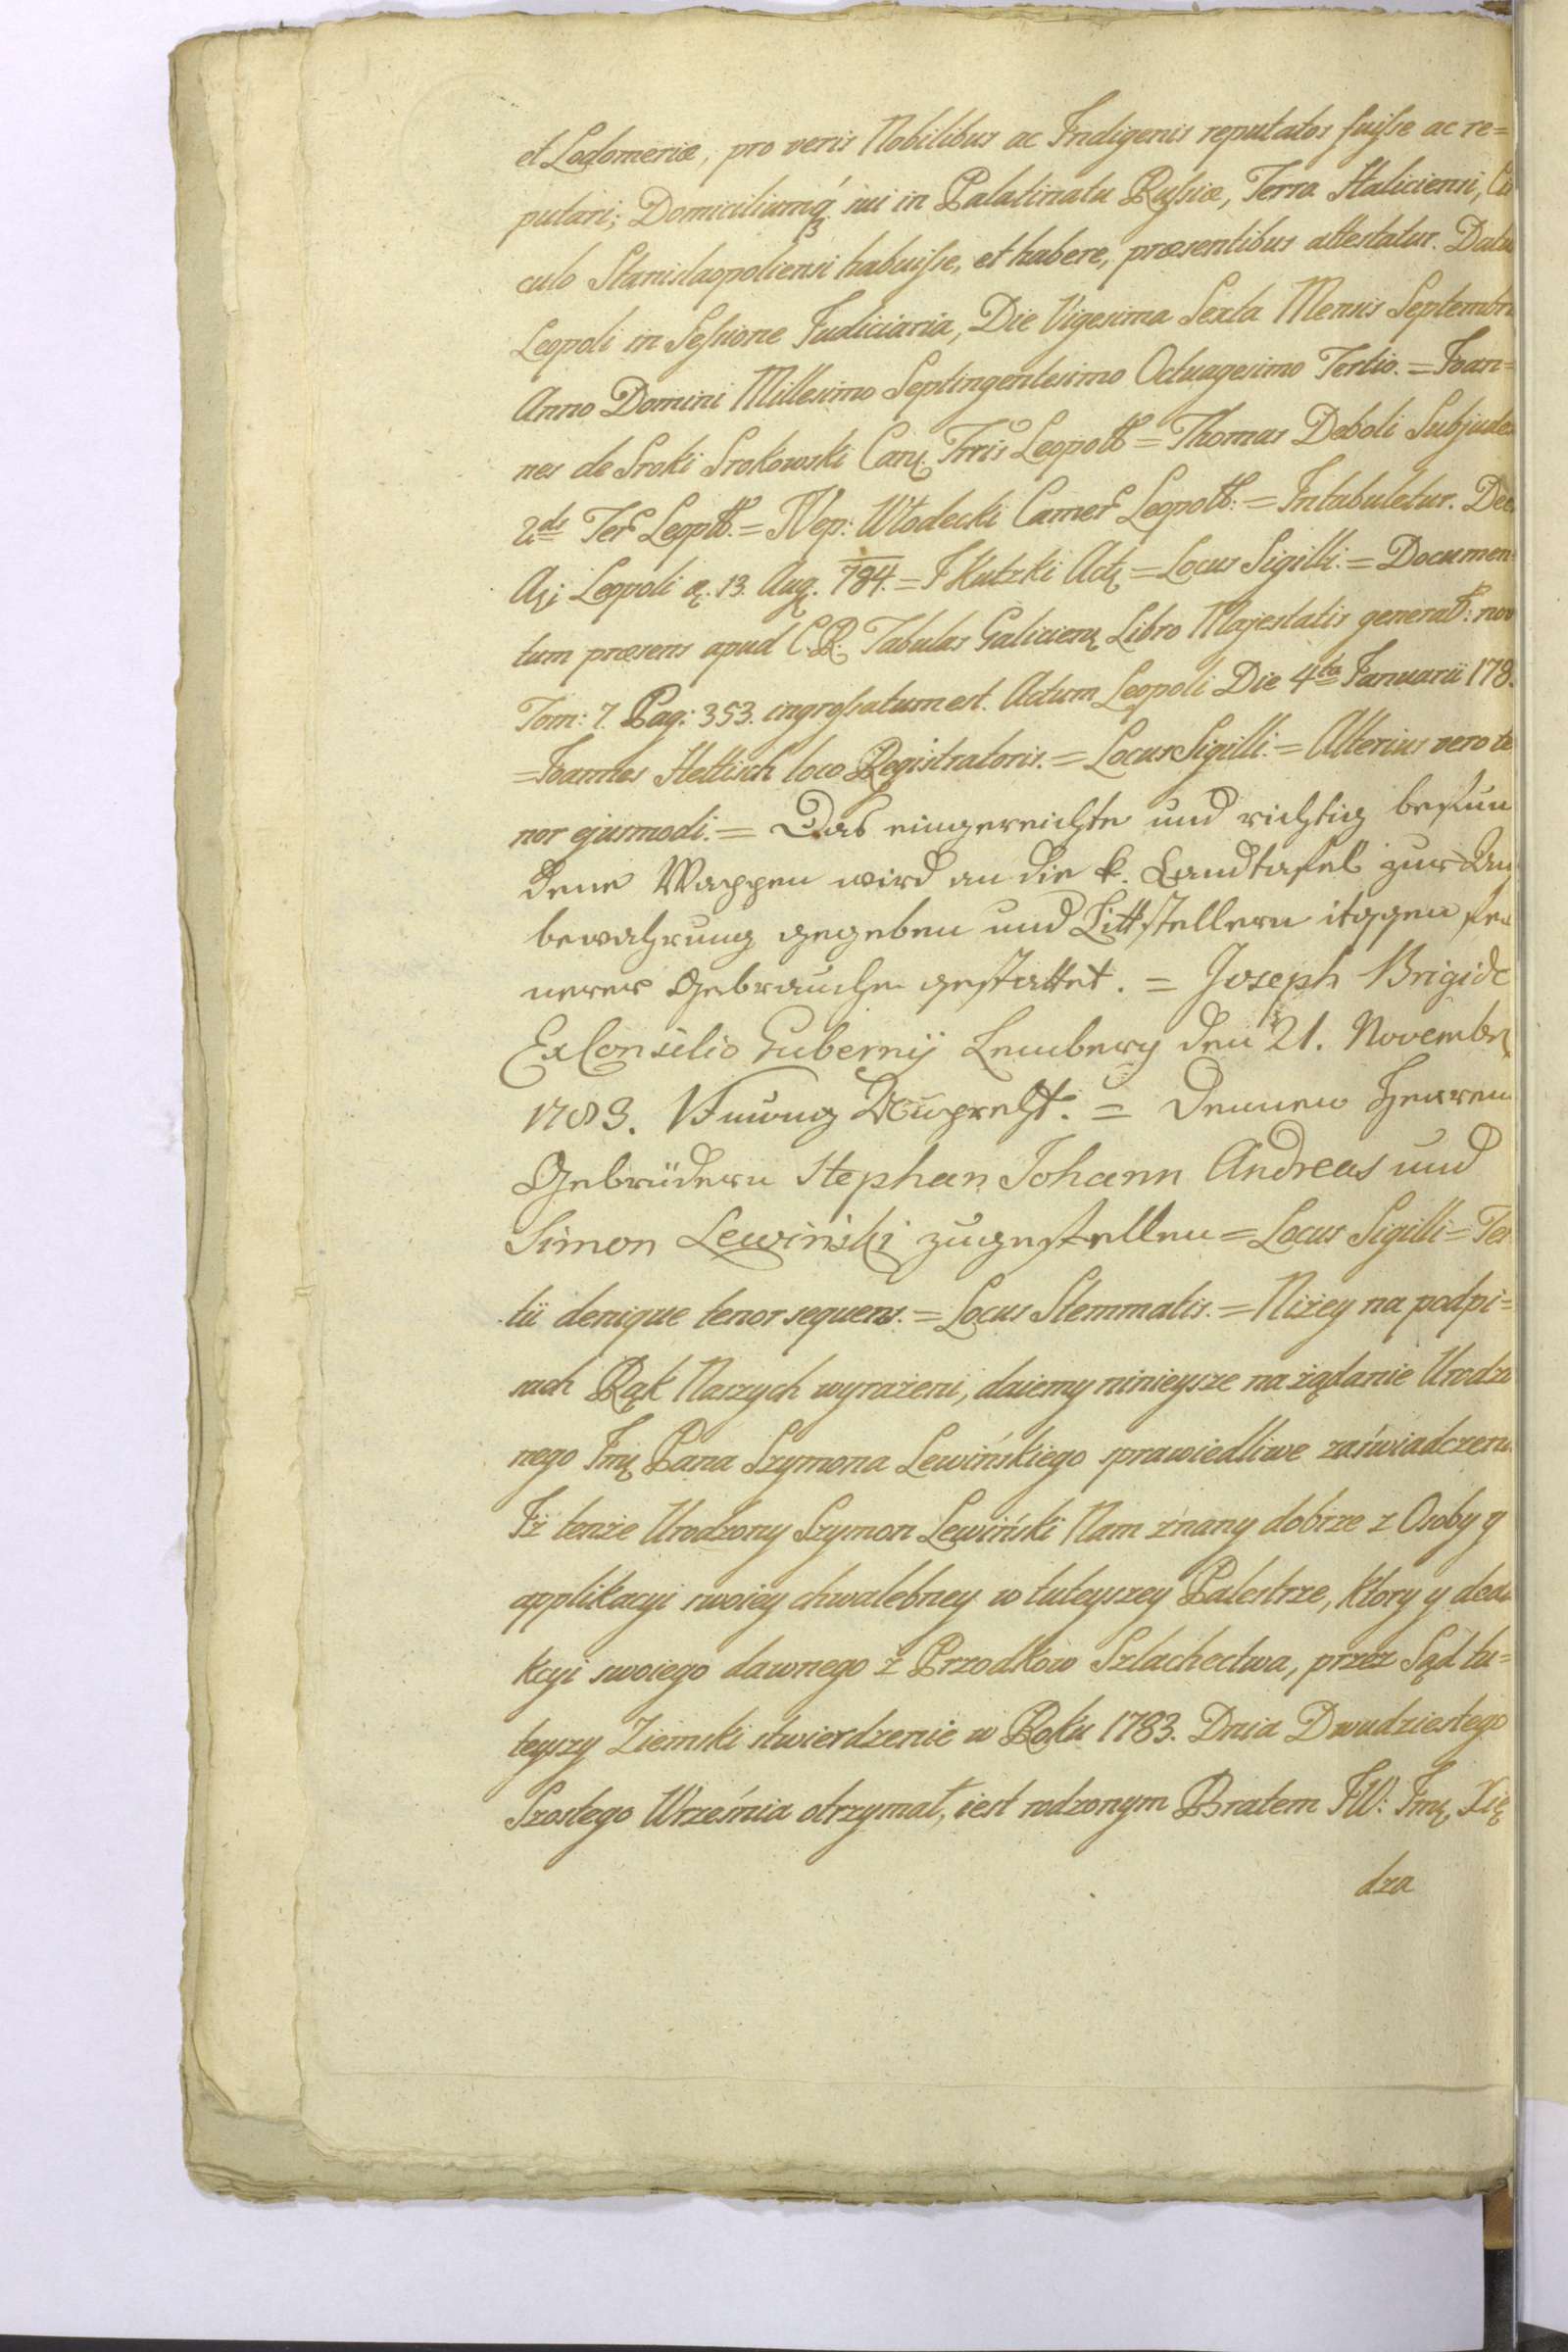 et Lodomeriæ, pro veris Nobilibus ac Indigenis reputatos fuiſse ac re=
putari; Domiciliumq́ʒ sui in Palatinatu Ruſsiæ, Terra Haliciensi, Cir
culo Stanislaopoliensi habuiſse, et habere, præsentibus attestatur. Datum
Leopoli in Seſsione Judiciaria, Die Vigesima Sexta Mensis Septembris
Anno Domini Millesimo Septingentesimo Octuagesimo Tertio. = Joan=
nes de Sroki Srokowski Leopoll = Thomas Deboli Subjudex
Ter Leopll. = Nep: Włodecki Camer Leopoll: = Intabuletur.
Leopoli 13. Aug. 784. = J Kutzki = Locus Sigilli. = Documen=
tum præsens apud C.R. Tabulas Libro Majestatis general: nov
Tom: 7. Pag: 353. ingroſsatum est. Actum Leopoli Die 4ta Januarii 178
= Joannes Hettisch loco Registratoris. = Locus Sigilli. = Alterius vero te
nor ejusmodi. = Das eingereichte und richtig befun
dene Wappen wird an die k. Landtafel zur
bewahrung gegeben und Bittstellern
gestattet. = Joseph Brigido
Ex Consilio Gubernij Lemberg den 21. Novembr
1783. = Denen Herren
Gebrüdern Stephan Johann Andreas und
Simon Lewiński zuzustellen = Locus Sigilli = Ter
tii denique tenor sequens. = Locus Stemmatis. = Niżey na podpi=
sach Rąk Naszych wyrażeni, daiemy ninieysze na żądanie Urodzo
nego Pana Szymona Lewińskiego sprawiedliwe zaświadczenie
Iż tenże Urodzony Szymon Lewiński Nam znany dobrze z Osoby y
applikacyi swoiey chwalebney w tuteyszey Palestrze, ktory y dedu
kcyi swoiego dawnego z Przodkow Szlachectwa, przez Sąd tu=
teyszy Ziemski stwierdzenie w Roku 1783. Dnia Dwudziestego
Szostego Września otrzymał, iest rodzonym Bratem JW: Xię
dza